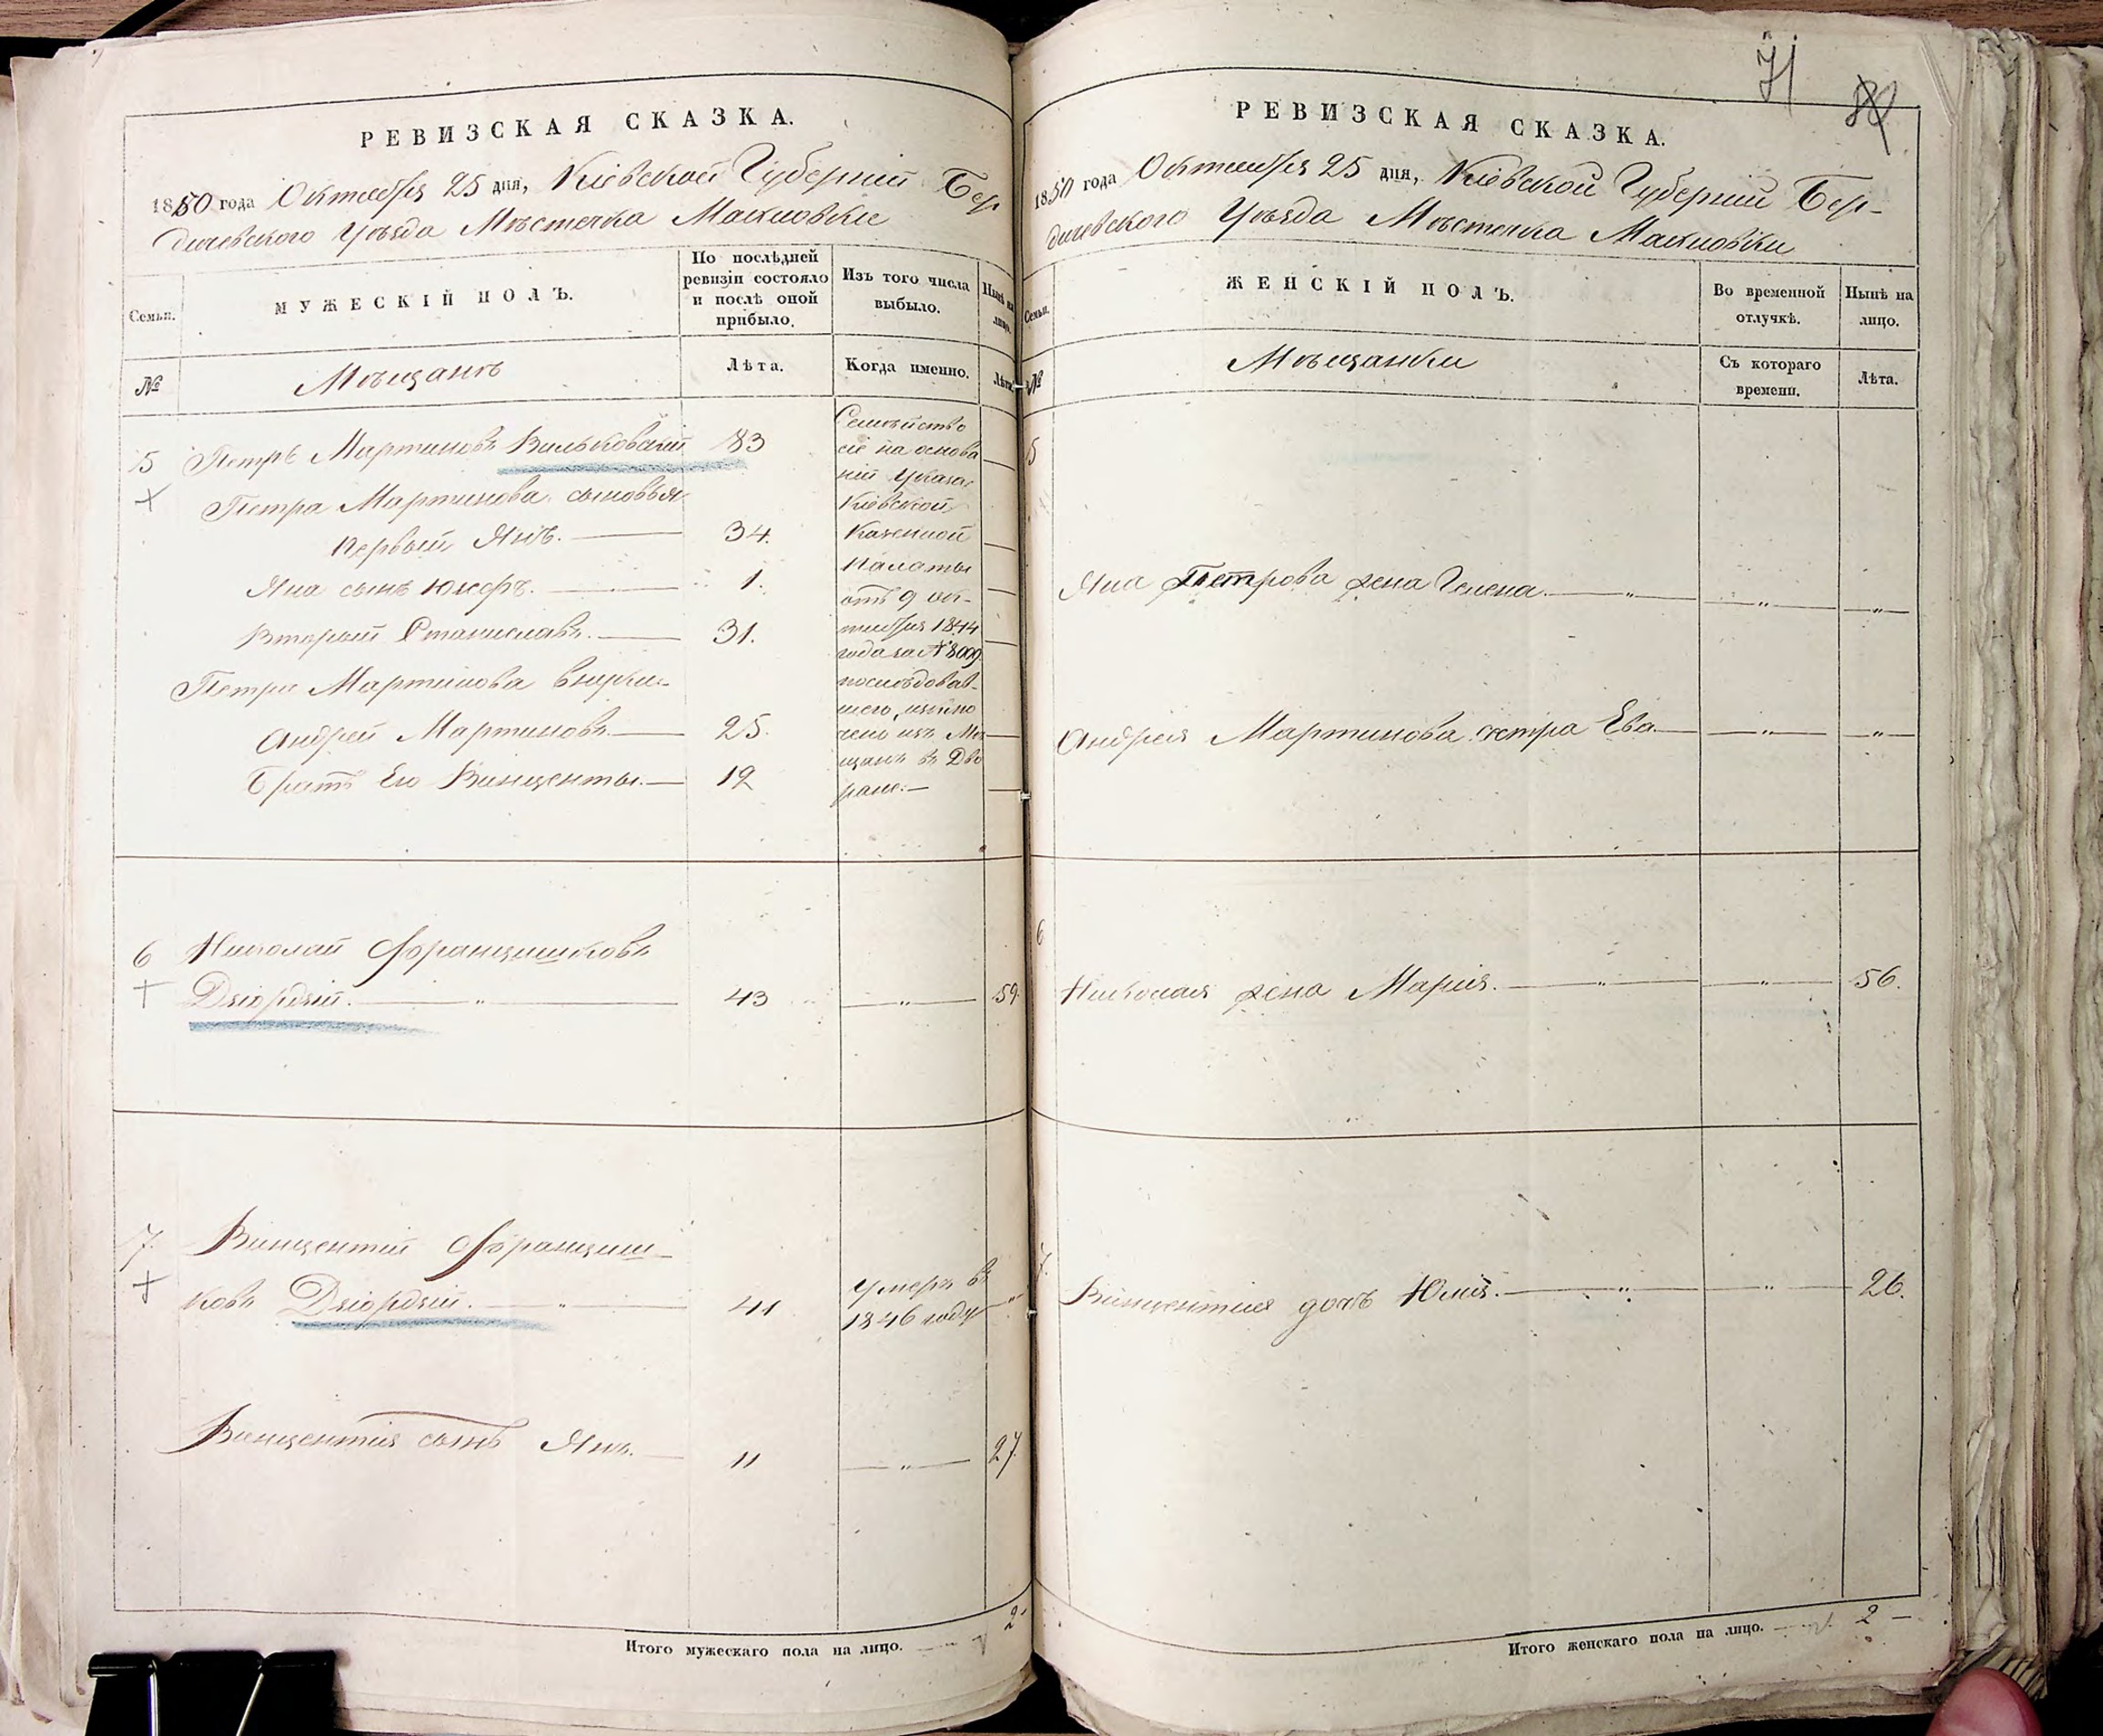 РЕВИЗСКАЯ СКАЗКА.
1850 года Октября 25 дня, Кіевской Губерніи Бер
дичевского Уѣзда Мѣстечка Махновки
Семьи.
МУЖЕСКІЙ ПОЛЪ.
По послѣдней
ревизіи состояло
и послѣ оной
прибыло.
Изъ того числа
выбыло.
Нынѣ на
лицо.
№
Мѣщанъ
Лѣта.
Когда именно.
Лѣта
5 Петръ Мартиновъ Вильковскій 83
Петра Мартинова сыновья
первый Янъ. 34.
Яна сынъ Юзефъ. 1.
Вторый Станиславъ. 31.
Петра Мартинова внуки
Андрей Мартиновъ 25.
Братъ Его Винценты. 12
Семѣйство
сіе на основа
ніи Указа
Кіевской
Казенной
Палаты
отъ 9 ок-
тября 1844
года за № 8009
послѣдовав-
шего, изклю
чено изъ Мѣ
щанъ въ Дво
ране.
6 Николай Францишковъ
Дзіордзій. 43 59.
7. Винцентій Францишь
ковъ Дзіордзій. 41
Умеръ въ
1846 году
Винцентія сынъ Янъ. 11 27.
Итого мужескаго пола на лицо. 2
71
РЕВИЗСКАЯ СКАЗКА.
1850 года Октября 25 дня, Кіевской Губерніи Бер-
дичевского Уѣзда Мѣстечка Махновки
Семьи.
ЖЕНСКІЙ ПОЛЪ.
Во временной
отлучкѣ.
Нынѣ на
лицо.
№
Мѣщанки
Съ котораго
времени.
Лѣта.
5
Яна Петрова жена Гелена.
Андрея Мартинова сестра Ева
6
Николая жена Марія. 56.
7.
Винцентія дочь Юлія. 26.
Итого женскаго пола на лицо. 2